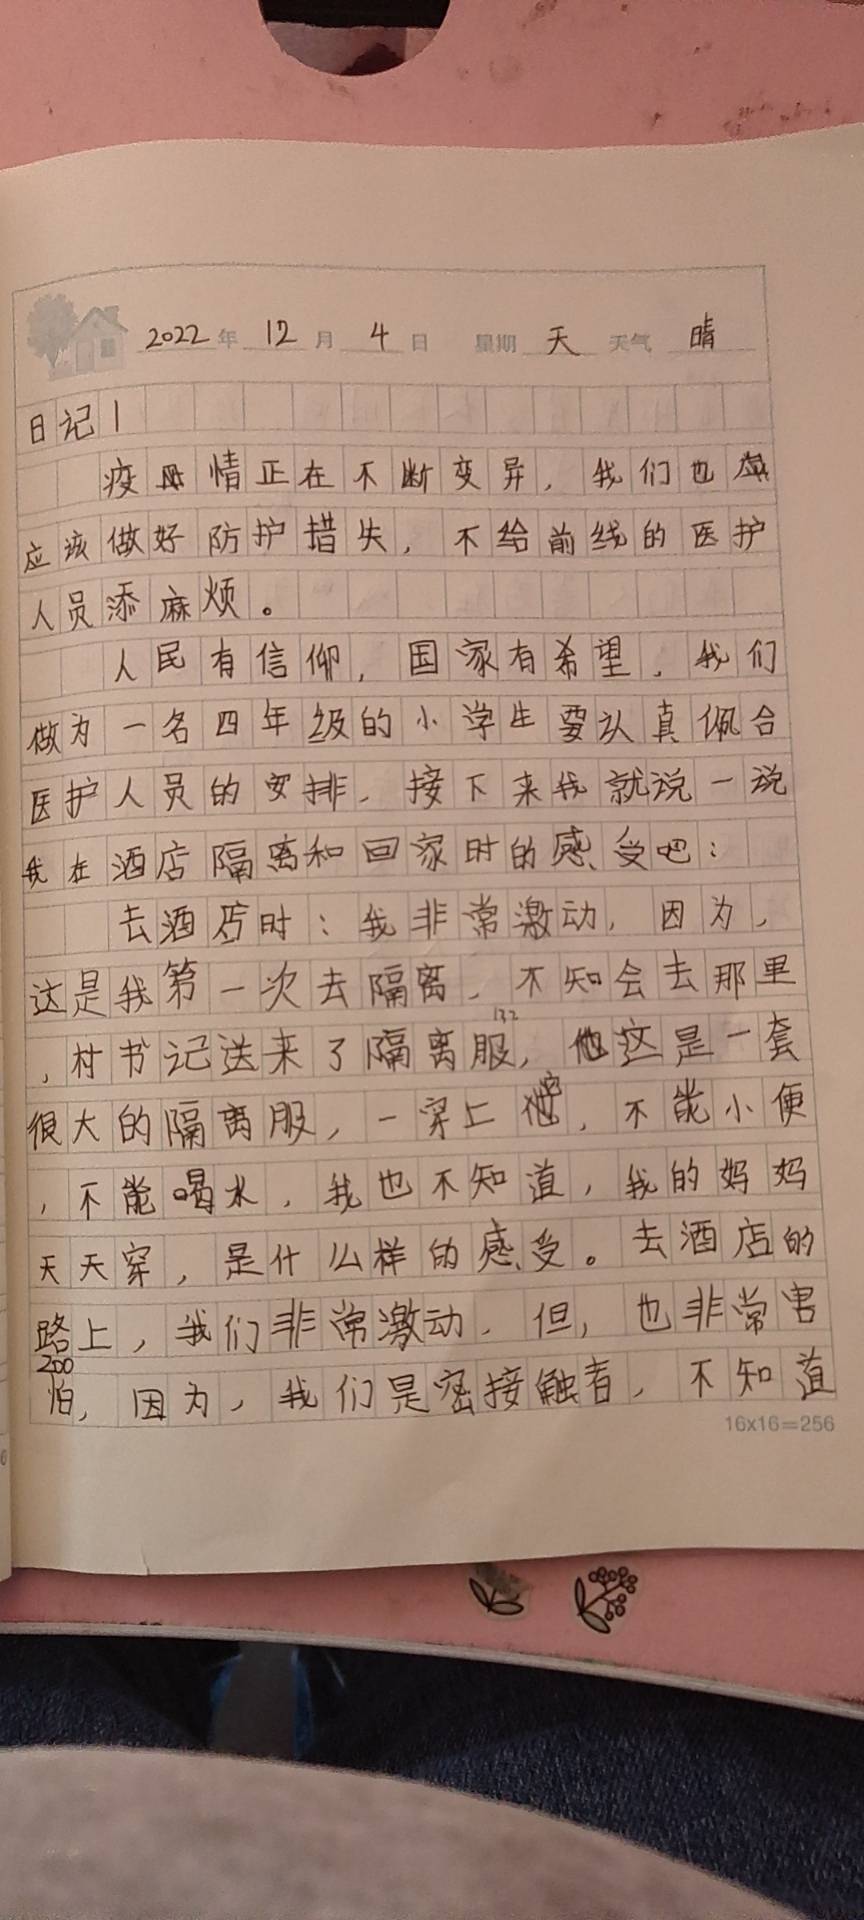 2022年 12月 4日 星期 天 天气 晴
日记1
疫情正在不断变异，我们也
应该做好防护措失，不给前线的医护
人员添麻烦。
人民有信仰，国家有希望，我们
做为一名四年级的小学生要认真佩合
医护人员的安排，接下来我就说一说
我在酒店隔离和回家时的感受吧：
去酒店时：我非常激动，因为，
这是我第一次去隔离，不知会去那里
，村书记送来了隔离服，这是一套
很大的隔离服，一穿上，不能小便
，不能喝水，我也不知道，我的妈妈
天天穿，是什么样的感受。去酒店的
路上，我们非常激动，但，也非常害
200
怕，因为，我们是密接触者，不知道
16x16=256